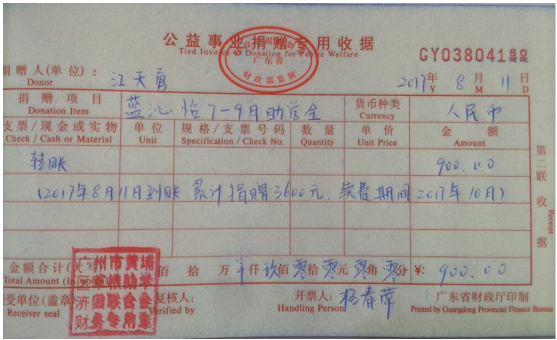 公益事业捐赠专用收据
Tied Invoice of Donation for Public Welfare
广东省
财政部监制
GY03804188
捐赠人(单位): 江天
Donor
2017年 8月 11日
Y M D
捐赠项目 蓝 怡7-9月助学金 货币种类 人民币
Donation Item Currency
支票/现金或实物 单位 规格/支票号码 数量 单价 金额
Check / Cash or Material Unit Specification / Check No. Quantity Unit Price Amount
转账 900.00
(2017年8月11日到账 累计捐赠3600元, 续费期间2017年10月)
第二联 收据
Receipt
金额合计(大写) 百 拾 万 仟 玖佰 零拾 零元 零角 零分 ¥: 900.00
Total Amount (In
广州市黄埔
接受单位(盖章) 复核人: 开票人: 杨春萍 广东省财政厅印制
Receiver seal Verified by Handling Person Printed by Guangdong Provincial Finance Bureau